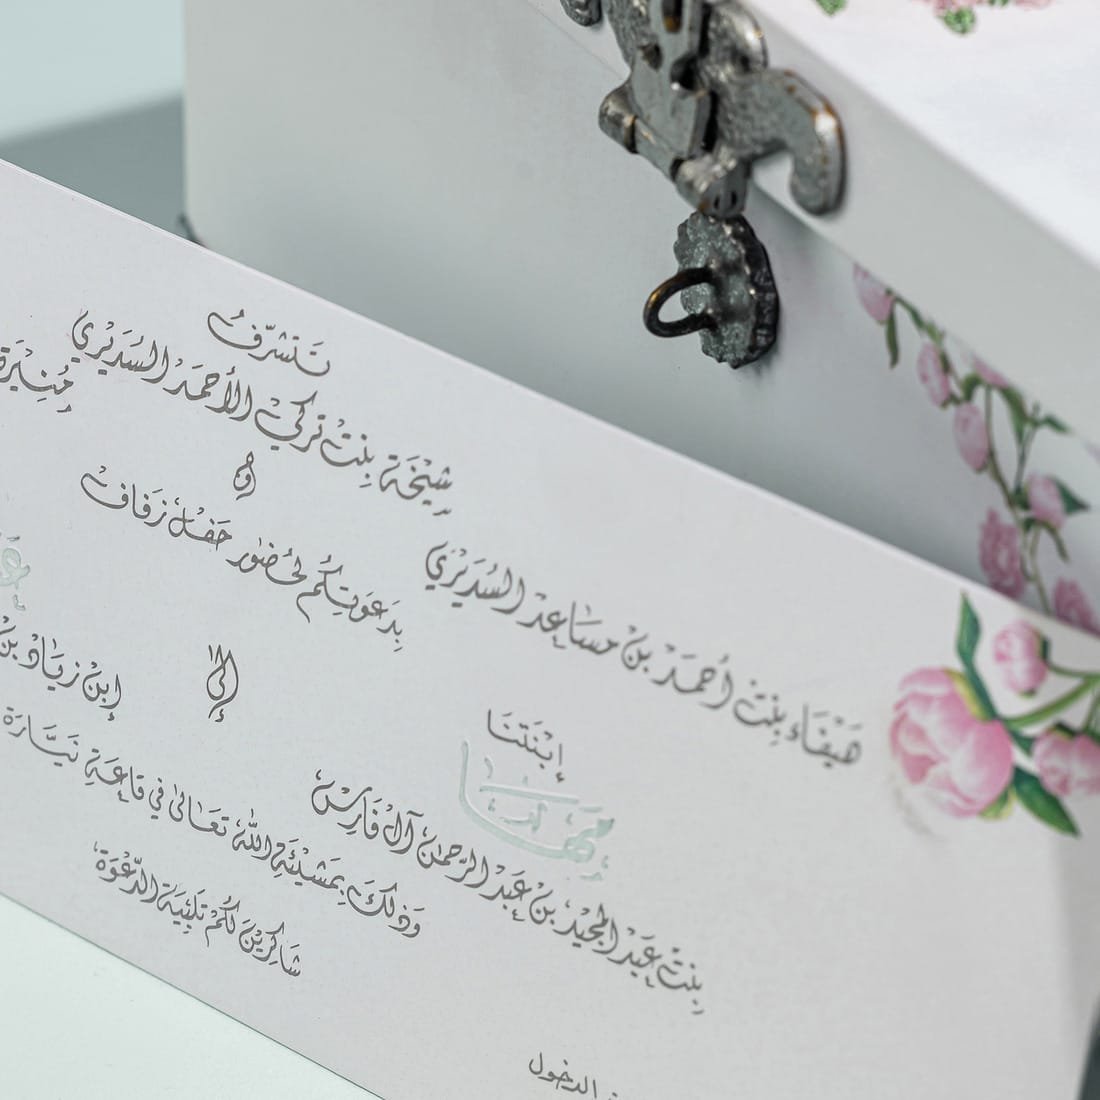 تَتَشَرَّفُ
شَيْخَة بِنْتْ تُركِي الأَحمَد السُّدَيْرِي
مُنِيَرة
أَوْ
هَيْفَاء بِنْتْ أَحْمَدْ بنْ مسَاعِدْ السُّدَيْرِي
بِدَعوَتِكُم لِحُضورِ حَفْل زفَاف
إِبْنَتنَا
مها
إِلى
إِبنْ زيَاد بنْ
بِنْتْ عَبد المجِيْد بنْ عَبد الرَّحمٰن آل فَارِسْ
وَذَلكَ بِمَشِيْئَةِ اللَّه تَعَالَىٰ فِي قَاعَةِ نيَّارَة
شَاكِرِيْنَ لَكُمْ تَلْبِيَةَ الدَّعْوَة
الدخول